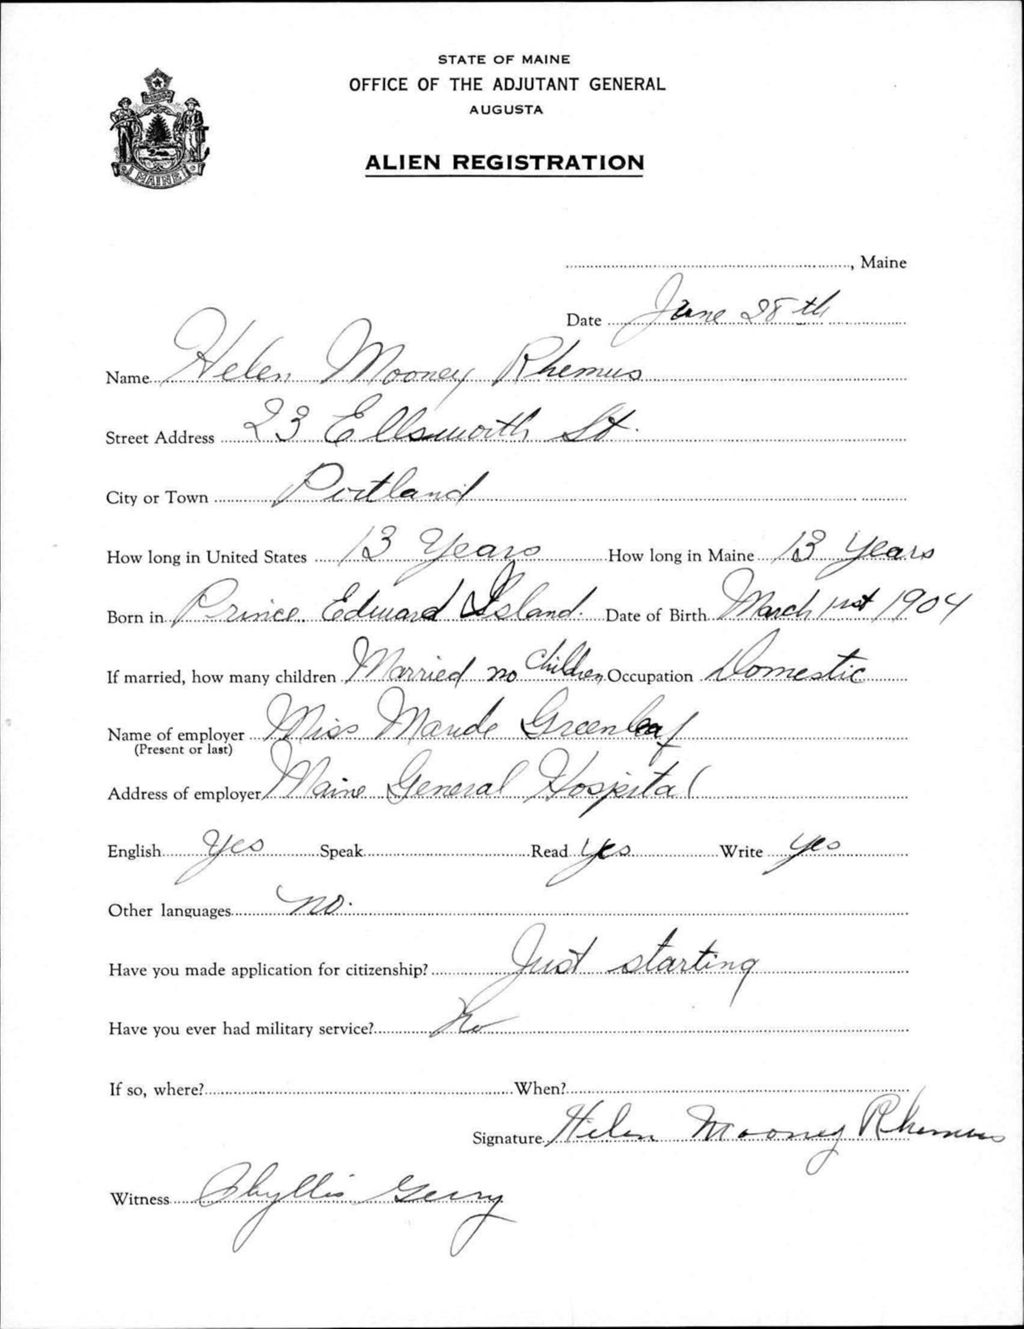 STATE OF MAINE
OFFICE OF THE ADJUTANT GENERAL
AUGUSTA
ALIEN REGISTRATION
MAINE
, Maine
Date June 28th
Name Helen Mooney Rhemus
Street Address 23 Ellsworth St.
City or Town Portland
How long in United States 13 Years How long in Maine 13 Years
Born in Prince Edward Island. Date of Birth March 1st 1904
If married, how many children Married no Children Occupation Domestic
Name of employer Miss Maude Greenleaf
(Present or last)
Address of employer Maine General Hospital
English Yes Speak Read Yes Write yes
Other languages no.
Have you made application for citizenship? Just starting
Have you ever had military service? No
If so, where? When?
Signature Helen Mooney Rhemus
Witness Phyllis Gerry